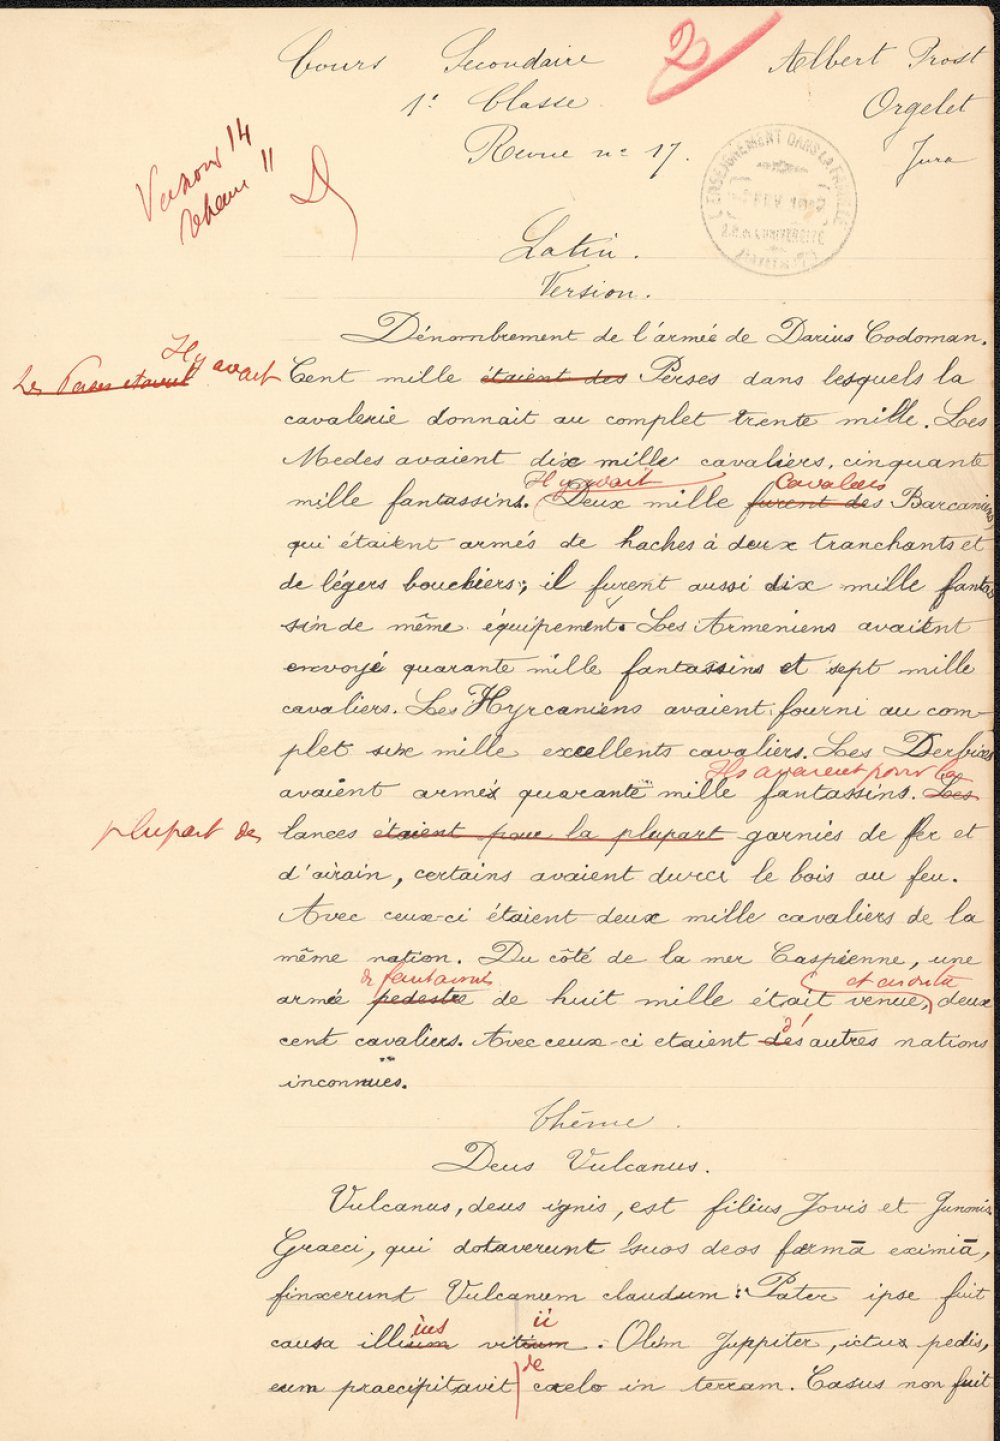 Cours Secondaire 2 Albert Prost
1e Classe Orgelet
Revue no 17. Jura
Version 14
thème 11
L'ENSEIGNEMENT DANS LA FAMILLE
Latin.
Version.
Dénombrement de l'armée de Darius Codoman.
Il y avait
Les Perses étaient
Cent mille étaient des Perses dans lesquels la
cavalerie donnait au complet trente mille. Les
Medes avaient dix mille cavaliers, cinquante
Il y avait cavaliers
mille fantassins. Deux mille furent des Barcaniens
qui étaient armés de haches à deux tranchants et
de légers boucliers; il furent aussi dix mille fantas
sin de même équipement. Les Armeniens avaient
envoyé quarante mille fantassins et sept mille
cavaliers. Les Hyrcaniens avaient fourni au com-
plet six mille excellents cavaliers. Les Derbices
Ils avaient pour la
avaient armés quarante mille fantassins. Les
plupart des
lances étaient pour la plupart garnies de fer et
d'airain, certains avaient durci le bois au feu.
Avec ceux-ci étaient deux mille cavaliers de la
même nation. Du côté de la mer Caspienne, une
de fantassins et ensuite
armée pedestre de huit mille était venue, deux
d'
cent cavaliers. Avec ceux-ci etaient des autres nations
inconnues.
Thème.
Deus Vulcanus.
Vulcanus, deus ignis, est filius Jovis et Junonis.
Graeci, qui dotaverunt suos deos formā eximiā,
finxerunt Vulcanum claudum: Pater ipse fuit
ius ii
causa illium vitium. Olim Juppiter, ictux pedis,
de
eum praecipitavit caelo in terram. Casus non fuit